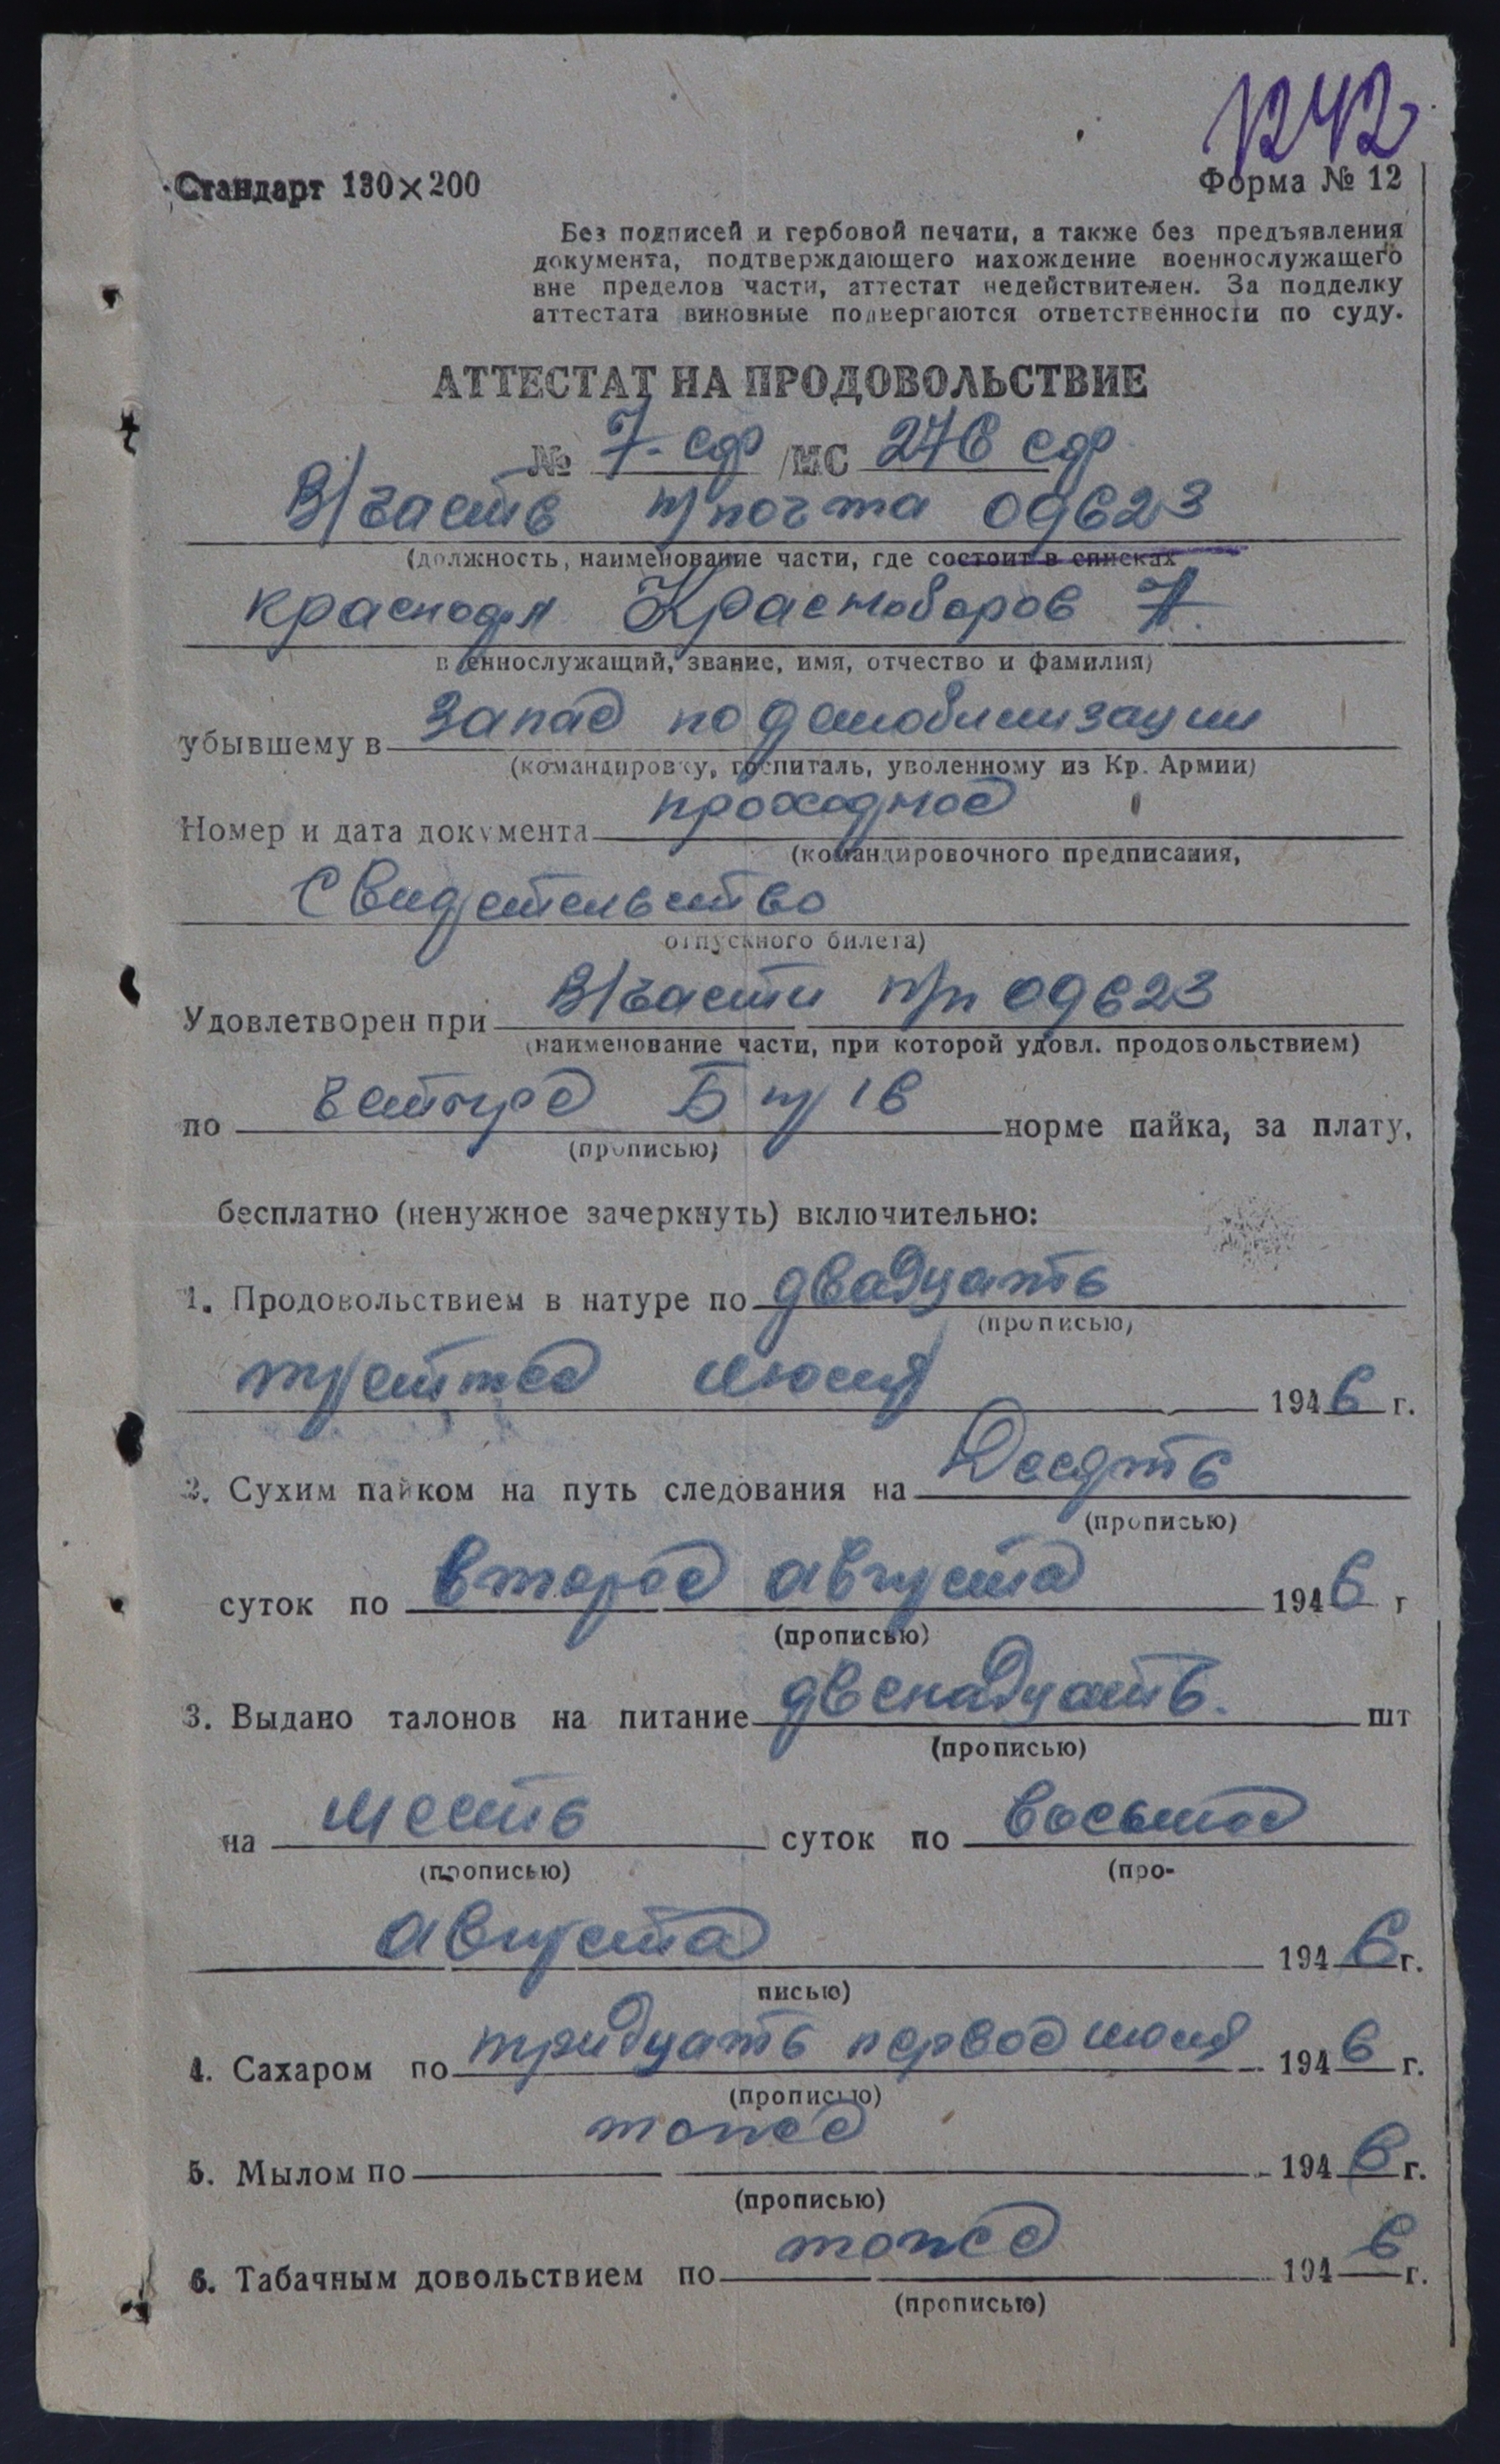 1242
Стандарт 130×200
Форма № 12
Без подписей и гербовой печати, а также без предъявления
документа, подтверждающего нахождение военнослужащего
вне пределов части, аттестат недействителен. За подделку
аттестата виновные подвергаются ответственности по суду.
АТТЕСТАТ НА ПРОДОВОЛЬСТВИЕ
№ 7-сф /МС 276 сф
В/часть п/почта 09623
(должность, наименование части, где состоит в списках
Красноборов
военнослужащий, звание, имя, отчество и фамилия)
убывшему в запас по демобилизации
(командировку, госпиталь, уволенному из Кр. Армии)
Номер и дата документа проходное
(командировочного предписания,
Свидетельство
отпускного билета)
Удовлетворен при В/части п/п 09623
(наименование части, при которой удовл. продовольствием)
по норме пайка, за плату,
(прописью)
бесплатно (ненужное зачеркнуть) включительно:
1. Продовольствием в натуре по двадцать
(прописью)
третье июля 1946 г.
2. Сухим пайком на путь следования на Десять
(прописью)
суток по второе августа 1946 г
(прописью)
3. Выдано талонов на питание двенадцать. шт
(прописью)
на шесть суток по восьмое
(прописью) (про-
августа 1946 г.
писью)
4. Сахаром по тридцать первое июля 1946 г.
(прописью)
5. Мылом по тоже 1946 г.
(прописью)
6. Табачным довольствием по тоже 1946 г.
(прописью)